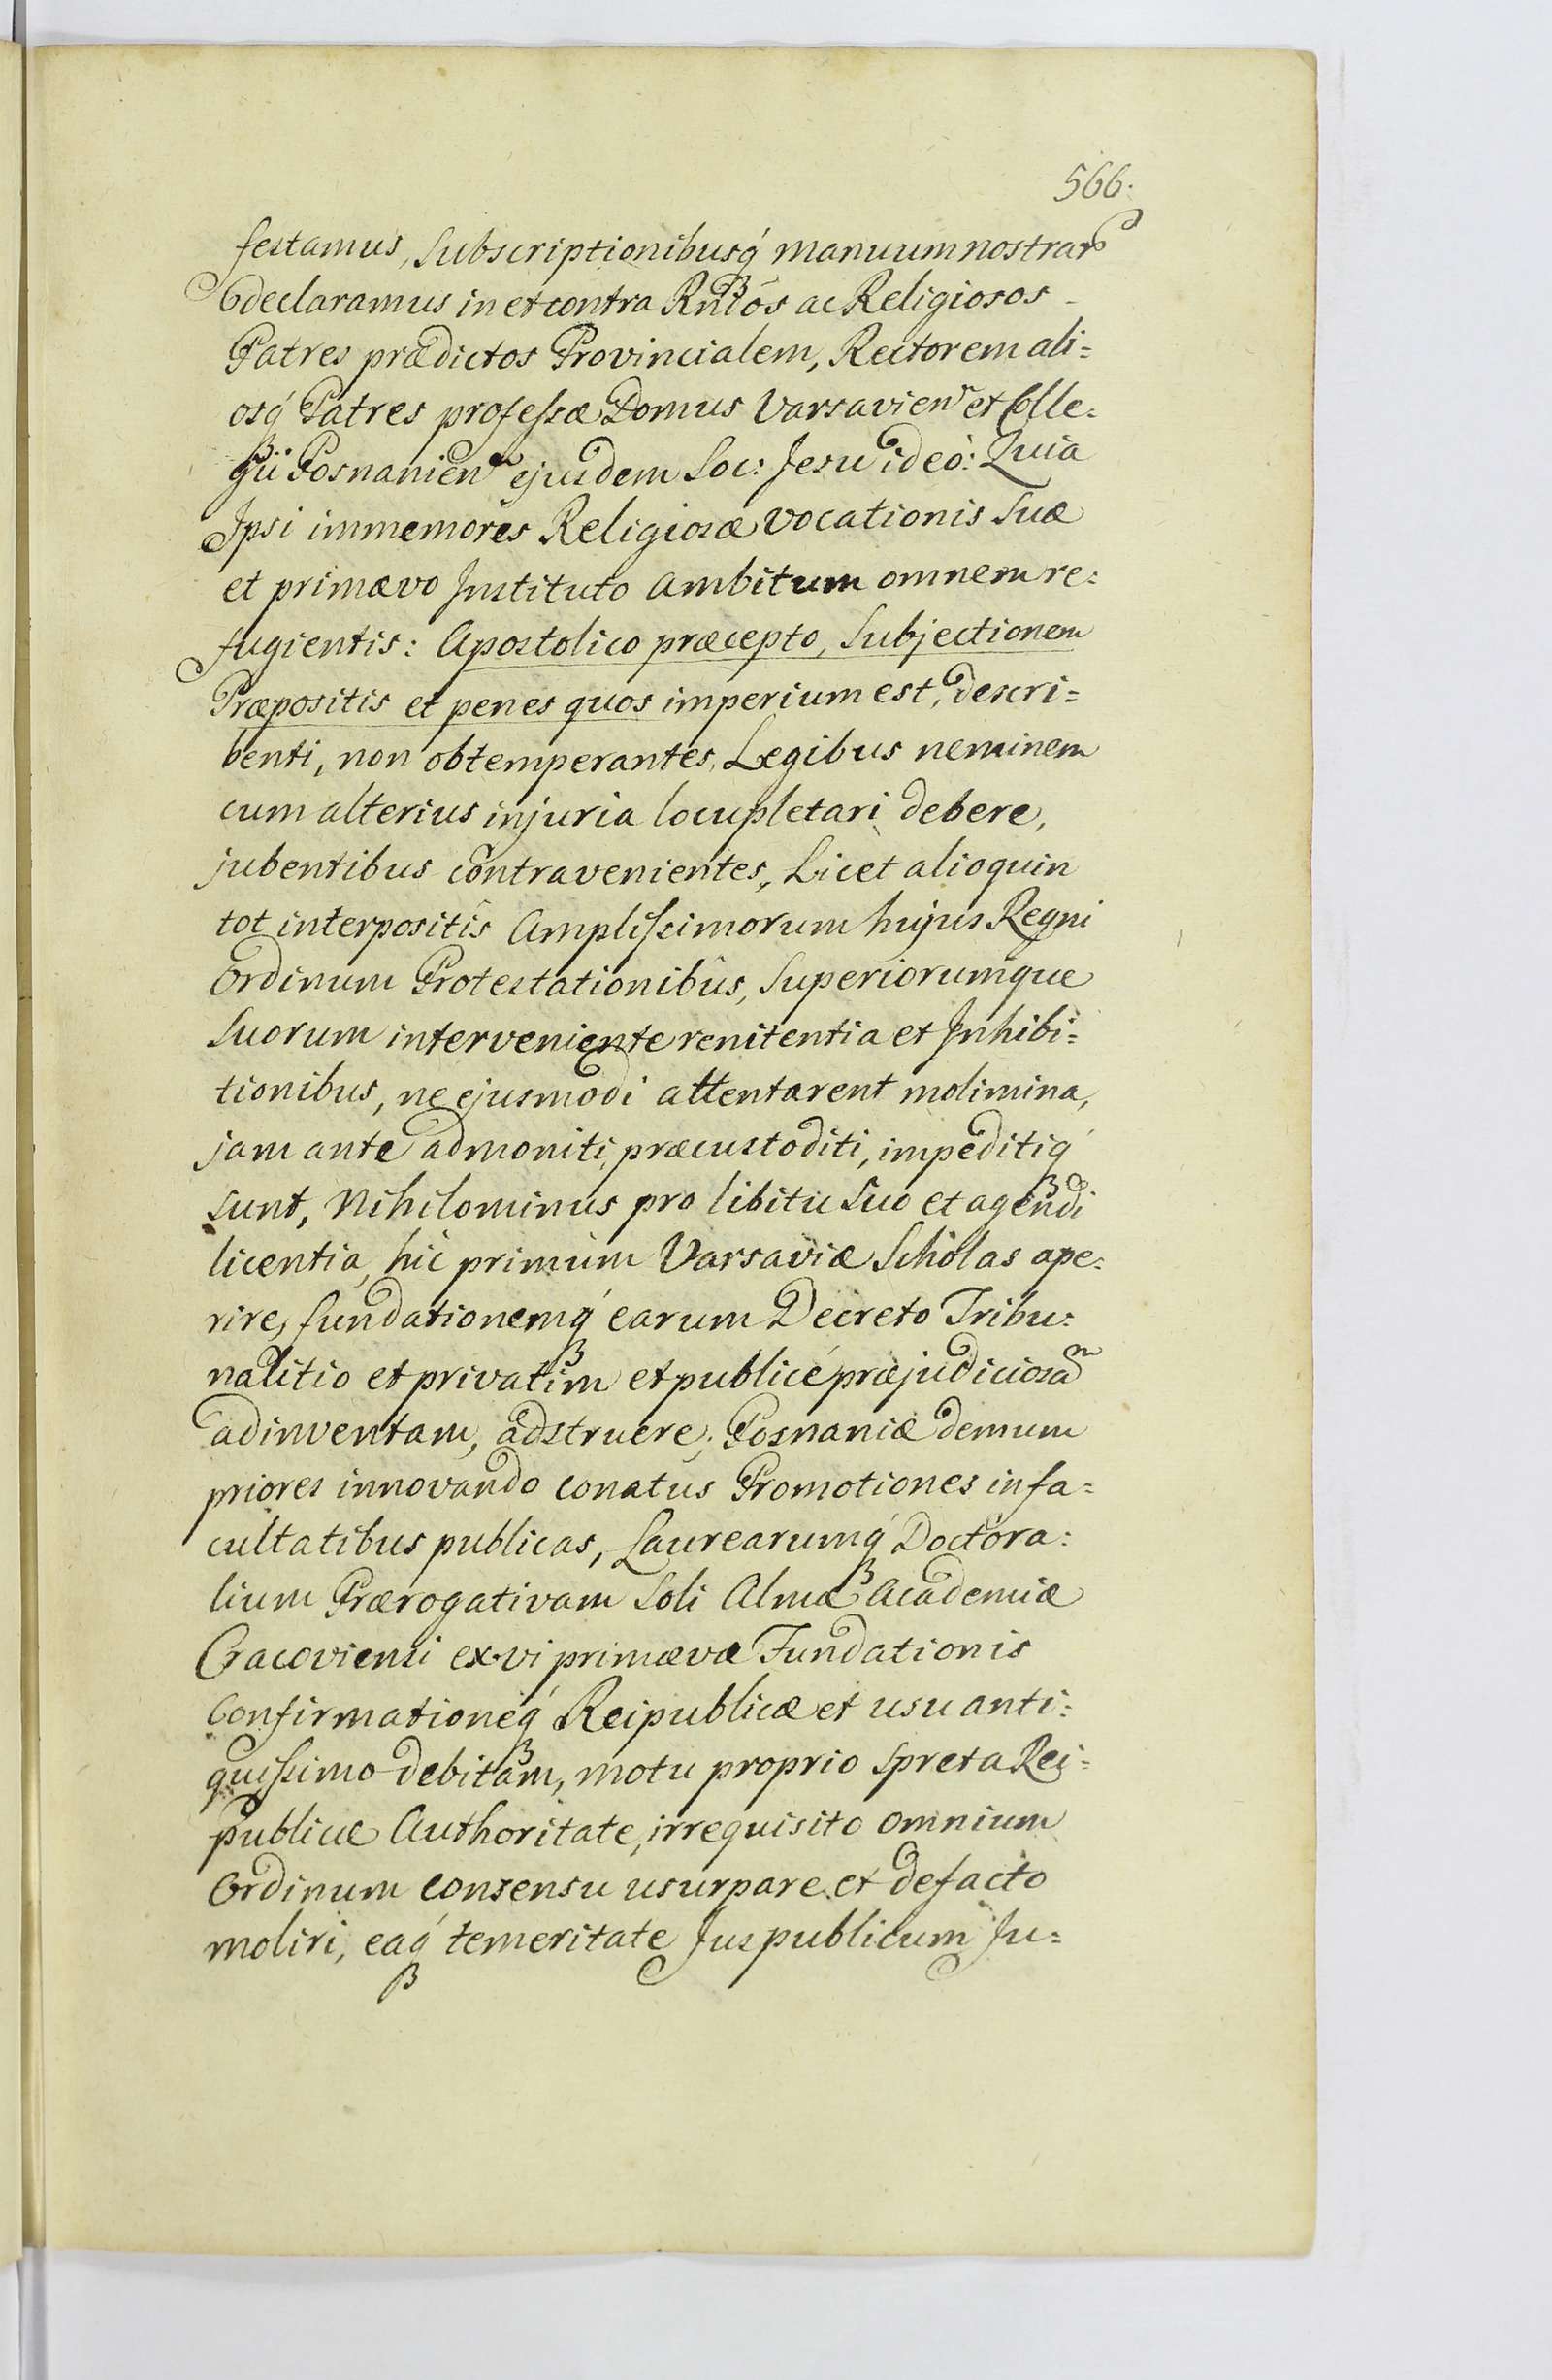 566.
festamus, Subscriptionibusq́ manuum nostrar
declaramus in et contra Rndos ac Religiosos
Patres prædictos Provincialem, Rectorem ali=
osq́ Patres professæ Domus Varsavien et Colle=
gii Posnanien ejusdem Soc: Jesu ideò: Quia
Ipsi immemores Religiosæ vocationis Suæ
et primævo Instituto ambitum omnem re=
fugientis: Apostolico præcepto, Subjectionem
Præpositis et penes quos imperium est, descri=
benti, non obtemperantes, Legibus neminem
cum alterius injuria locupletari debere,
jubentibus contravenientes, Licet alioquin
tot interpositîs Amplissimorum hujus Regni
Ordinum Protestationibûs, Superiorumque
Suorum interveniente renitentia et Inhibi=
tionibus, ne ejusmodi attentarent molimina,
jam ante admoniti, præcustoditi, impeditiq́
sunt, Nihilominus pro libitu Suo et agendi
licentia, hic primùm Varsaviæ Scholas ape=
rire, fundationemq́ earum Decreto Tribu=
nalitio et privatim et publicè præjudiciosam
adinventam, adstruere; Posnaniæ demum
priores innovando conatus Promotiones in fa=
cultatibus publicas, Laurearumq́ Doctora=
lium Prærogativam Soli Almæ Academiæ
Cracoviensi ex vi primævæ Fundationis
Confirmationeq́ Reipublicæ et usu anti=
quissimo debitam, motu proprio spreta Rei=
publicæ Authoritate, irrequisito omnium
Ordinum consensu usurpare et de facto
moliri, eaq́ temeritate Jus publicum Ju=